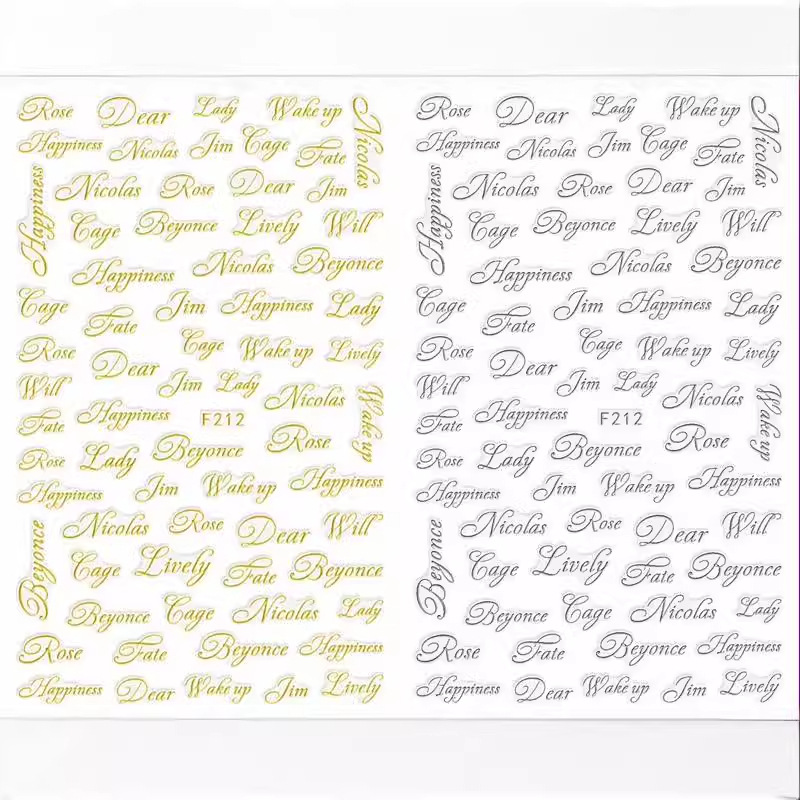 Rose Dear Lady Wake up Nicolas
Happiness Nicolas Jim Cage Fate
Happiness Nicolas Rose Dear Jim
Cage Beyonce Lively Will
Happiness Nicolas Beyonce
Cage Fate Jim Happiness Lady
Rose Dear Cage Wake up Lively
Will Jim Lady Nicolas Wake up
Fate Happiness F212 Rose
Rose Lady Beyonce
Happiness Jim Wake up Happiness
Beyonce Nicolas Rose Dear Will
Cage Lively Fate Beyonce
Beyonce Cage Nicolas Lady
Rose Fate Beyonce Happiness
Happiness Dear Wake up Jim Lively
Rose Dear Lady Wake up Nicolas
Happiness Nicolas Jim Cage Fate
Happiness Nicolas Rose Dear Jim
Cage Beyonce Lively Will
Happiness Nicolas Beyonce
Cage Fate Jim Happiness Lady
Rose Dear Cage Wake up Lively
Will Jim Lady Nicolas Wake up
Fate Happiness F212 Rose
Rose Lady Beyonce
Happiness Jim Wake up Happiness
Beyonce Nicolas Rose Dear Will
Cage Lively Fate Beyonce
Beyonce Cage Nicolas Lady
Rose Fate Beyonce Happiness
Happiness Dear Wake up Jim Lively